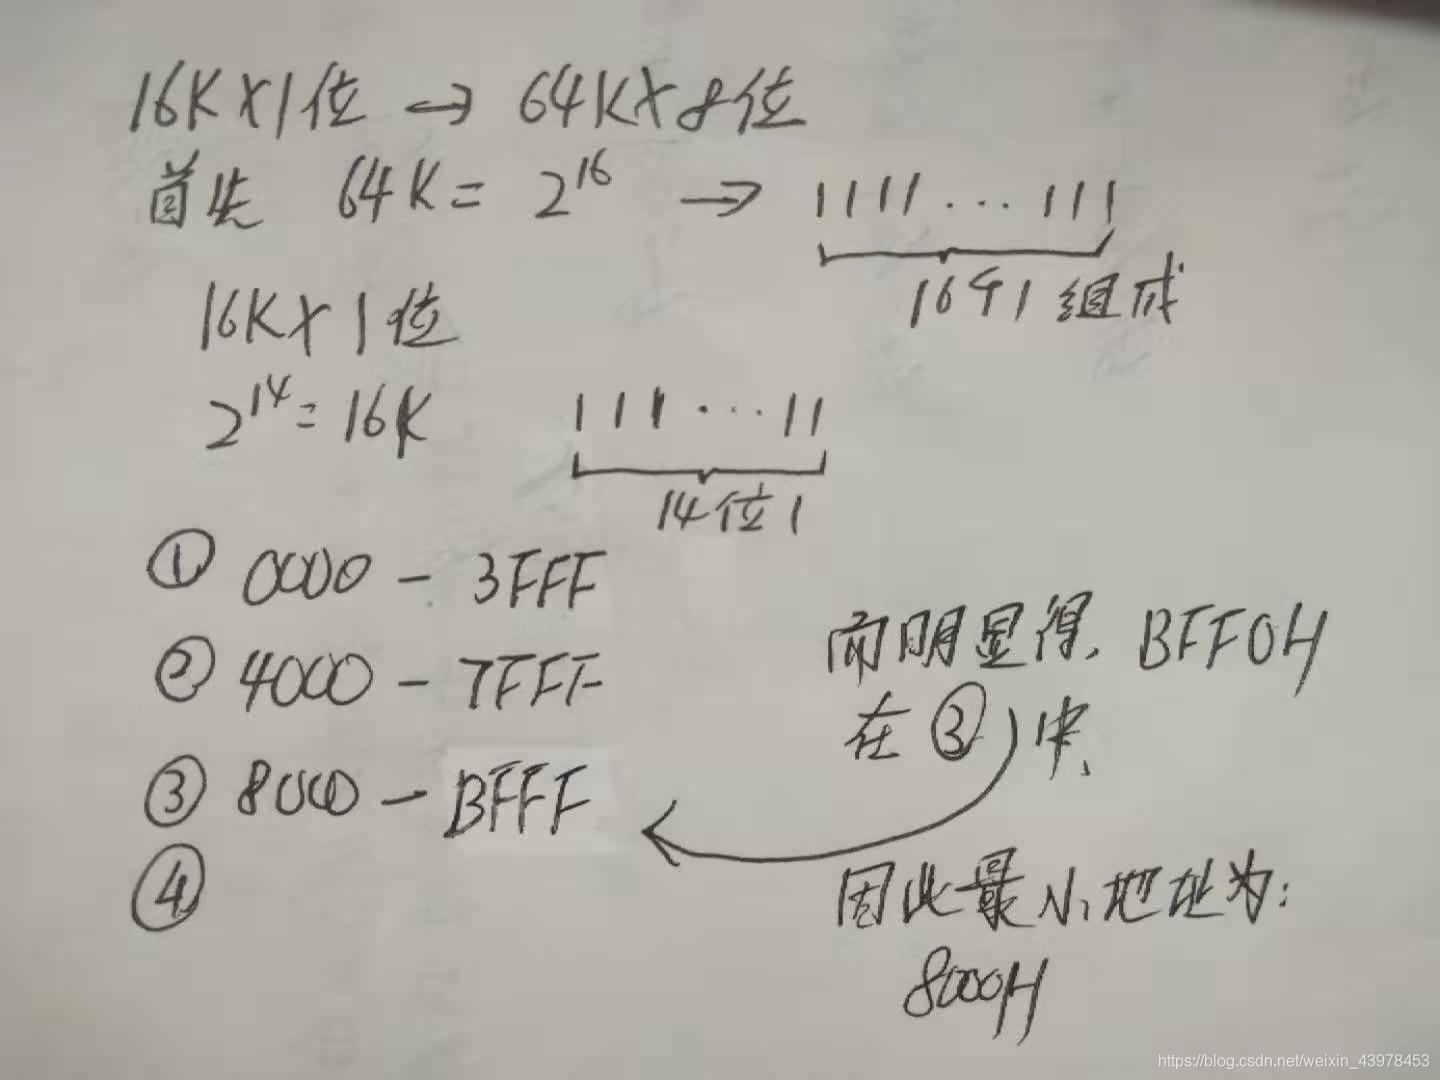 16K×1位 → 64K×8位
首先 64K = 2^16 → 1111...111
16个1组成
16K×1位
2^14 = 16K 111...11
14位1
① 0000 - 3FFF
② 4000 - 7FFF
③ 8000 - BFFF
④
而明显得, BFF0H
在③中,
因此最小地址为:
8000H
https://blog.csdn.net/weixin_43978453